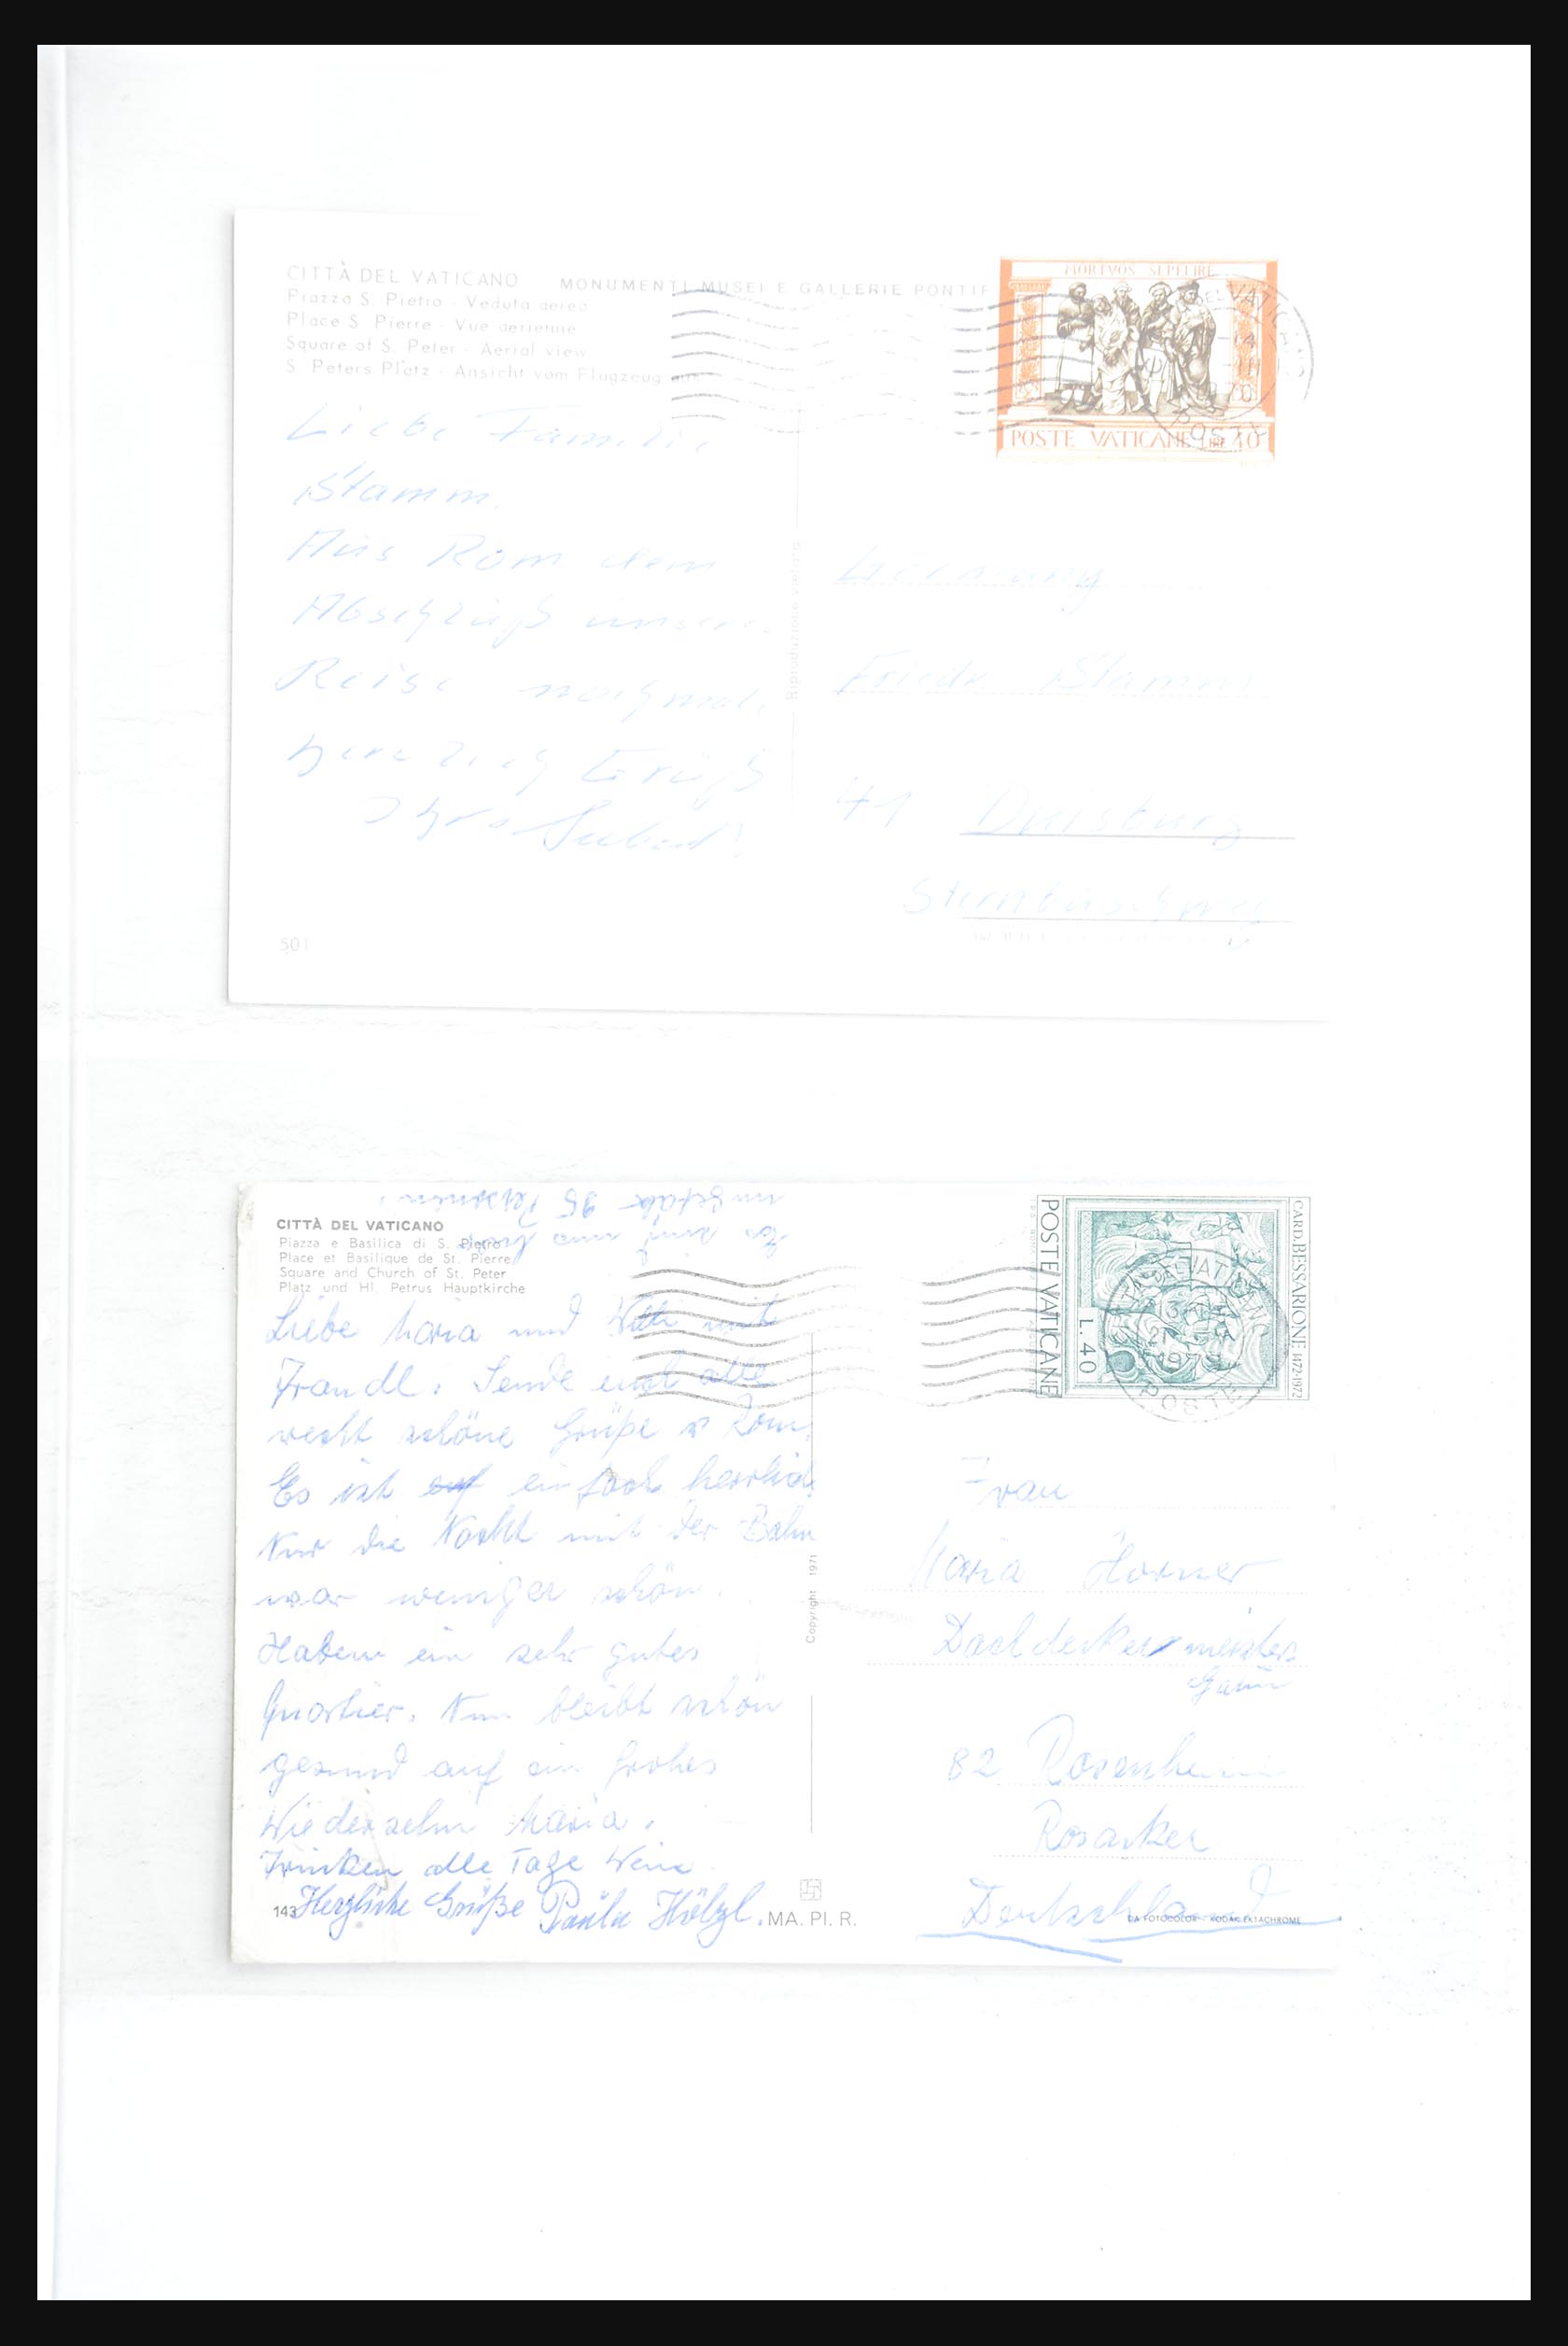 CITTÀ DEL VATICANO
Piazza S. Pietro - Veduta aerea
Place S. Pierre - Vue aerienne
Square of S. Peter - Aerial view
S. Peters Platz - Ansicht vom Flugzeug aus
MONUMENTI MUSEI E GALLERIE PONTIF
MORTVOS SEPELIRE
POSTE VATICANE LIRE 40
POSTE
Liebe Familie
Stamm.
Aus Rom dem
Abschluß unserer
Reise nochmal.
herzlich Grüß
Ihre
Riproduzione vietata
Germany
Friedr. Stamm
41 Duisburg
Sternbuschweg
501
ungefähr 95 Personen.
Es sind
CITTÀ DEL VATICANO
Piazza e Basilica di S. Pietro
Place et Basilique de St. Pierre
Square and Church of St. Peter
Platz und Hl. Petrus Hauptkirche
POSTE VATICANE
L. 40
CARD. BESSARIONE 1472-1972
POSTE
Liebe Maria und Willi mit
Frandl. Sende euch alle
recht schöne Grüße v Rom.
Es ist auf einfach herrlich
Nur die Nacht mit der Bahn
war weniger schön.
Haben ein sehr gutes
Quartier. Nun bleibt schön
gesund auf ein frohes
Wiedersehn Maria.
Trinken alle Tage Wein
Herzliche Grüße Paula Hölzl.
Copyright 1971
Frau
Maria Horner
Dachdeckermeisters
82 Rosenheim
Rosacker
Deutschland
143
MA. PI. R.
DA FOTOCOLOR KODAK EKTACHROME